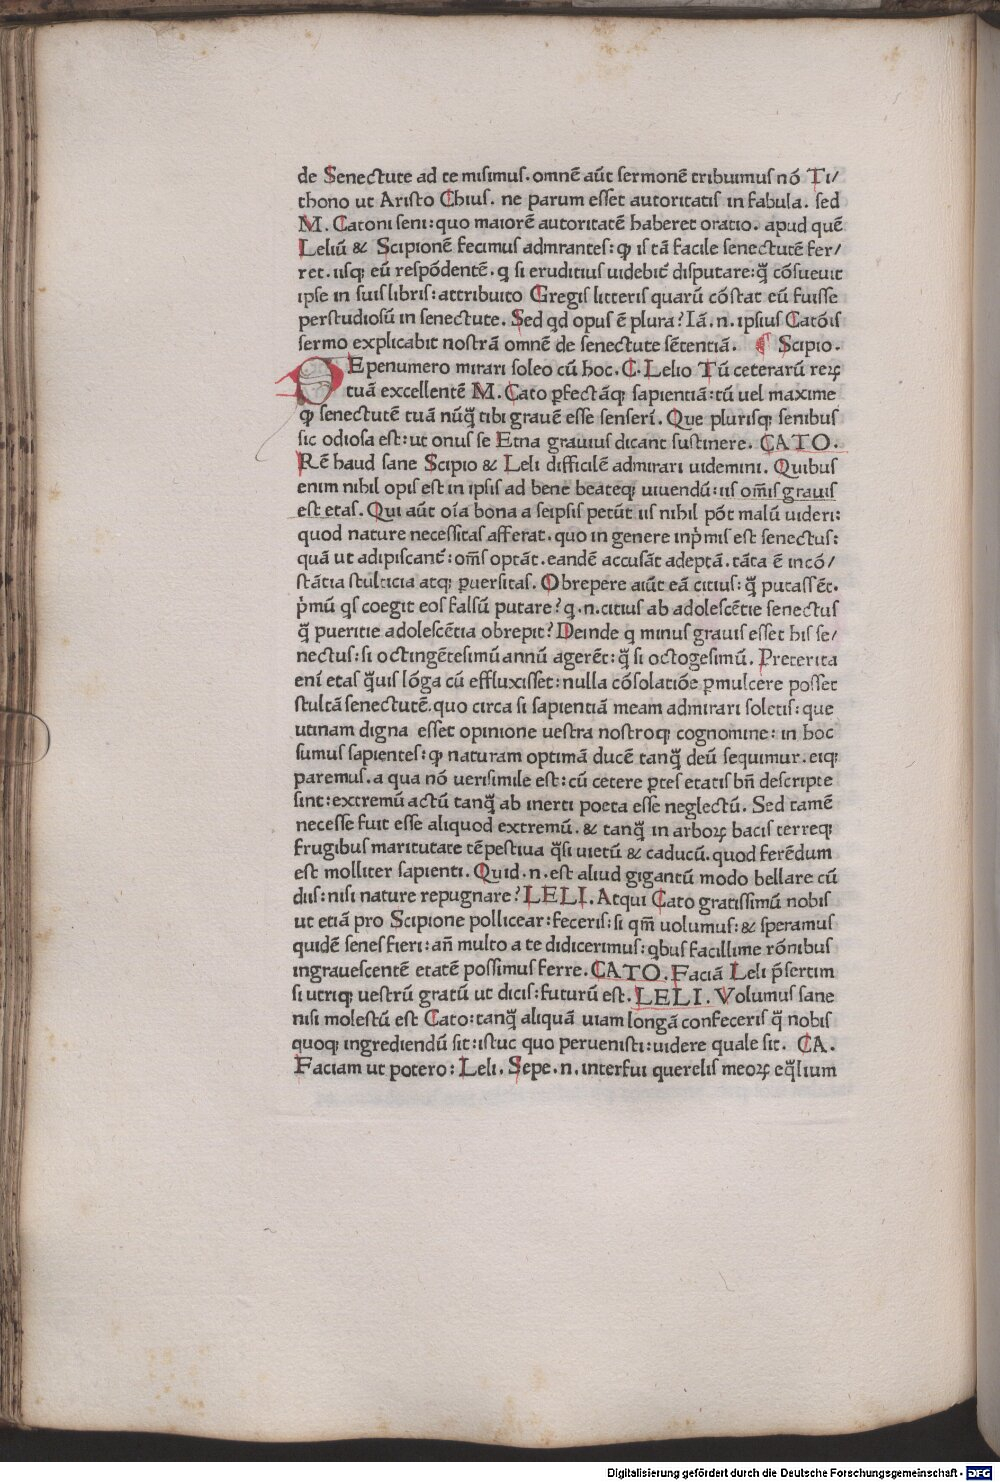 de Senectute ad te misimus. omnē aūt sermonē tribuimus nō Ti/
thono ut Aristo Chius. ne parum esset autoritatis in fabula. sed
M. Catoni seni: quo maiorē autoritatē haberet oratio. apud quē
Leliū & Scipionē fecimus admirantes: ꝙ is tā facile senectutē fer/
ret. iisqꝫ eū respōdentē. q si eruditius uidebit disputare: q̄ cōsueuit
ipse in suis libris: attribuito Gregis litteris quarū cōstat eū fuisse
perstudiosū in senectute. Sed qd opus ē plura? Iā. n. ipsius Catōis
sermo explicabit nostrā omnē de senectute sētentiā. Scipio.
SEpenumero mirari soleo cū hoc. C. Lelio Tū ceterarū reꝝ
tuā excellentē M. Cato ꝑfectāqꝫ sapientiā: tū uel maxime
ꝙ senectutē tuā nūq̄ tibi grauē esse senserī. Que plurisqꝫ senibus
sic odiosa est: ut onus se Etna grauius dicant sustinere. CATO.
Rē haud sane Scipio & Leli difficilē admirari uidemini. Quibus
enim nihil opis est in ipsis ad bene beateqꝫ uiuendū: iis om̄is grauis
est etas. Qui aūt oīa bona a seipsis petūt iis nihil pōt malū uideri:
quod nature necessitas afferat. quo in genere inp̄mis est senectus:
quā ut adipiscant: om̄s optāt. eandē accusāt adeptā. tāta ē incō/
stātia stulticia atqꝫ ꝑuersitas. Obrepere aiūt eā citius: q̄ putassēt.
p̄mū qs coegit eos falsū putare? q. n. citius ab adolescētie senectus
q̄ pueritie adolescētia obrepit? Deinde q minus grauis esset his se/
nectus: si octingētesimū annū agerēt: q̄ si octogesimū. Preterita
enī etas q̄uis lōga cū effluxisset: nulla cōsolatiōe ꝑmulcere posset
stultā senectutē. quo circa si sapientiā meam admirari soletis: que
utinam digna esset opinione uestra nostroqꝫ cognomine: in hoc
sumus sapientes: ꝙ naturam optimā ducē tanq̄ deū sequimur. eiqꝫ
paremus. a qua nō uerisimile est: cū cetere ꝑtes etatis bn̄ descripte
sint: extremū actū tanq̄ ab inerti poeta esse neglectū. Sed tamē
necesse fuit esse aliquod extremū. & tanq̄ in arboꝝ bacis terreqꝫ
frugibus maritutate tēpestiua q̄si uietū & caducū. quod ferēdum
est molliter sapienti. Quid. n. est aliud gigantū modo bellare cū
diis: nisi nature repugnare? LELI. Atqui Cato gratissimū nobis
ut etiā pro Scipione pollicear: feceris: si qm̄ uolumus: & speramus
quidē senes fieri: an̄ multo a te didicerimus: qbus facillime rōnibus
ingrauescentē etatē possimus ferre. CATO. Faciā Leli p̄sertim
si utriqꝫ uestrū gratū ut dicis: futurū est. LELI. Volumus sane
nisi molestū est Cato: tanq̄ aliquā uiam longā confeceris q̄ nobis
quoqꝫ ingrediendū sit: istuc quo peruenisti: uidere quale sit. CA.
Faciam ut potero: Leli. Sepe. n. interfui querelis meoꝝ eq̄lium
Digitalisierung gefördert durch die Deutsche Forschungsgemeinschaft - DFG